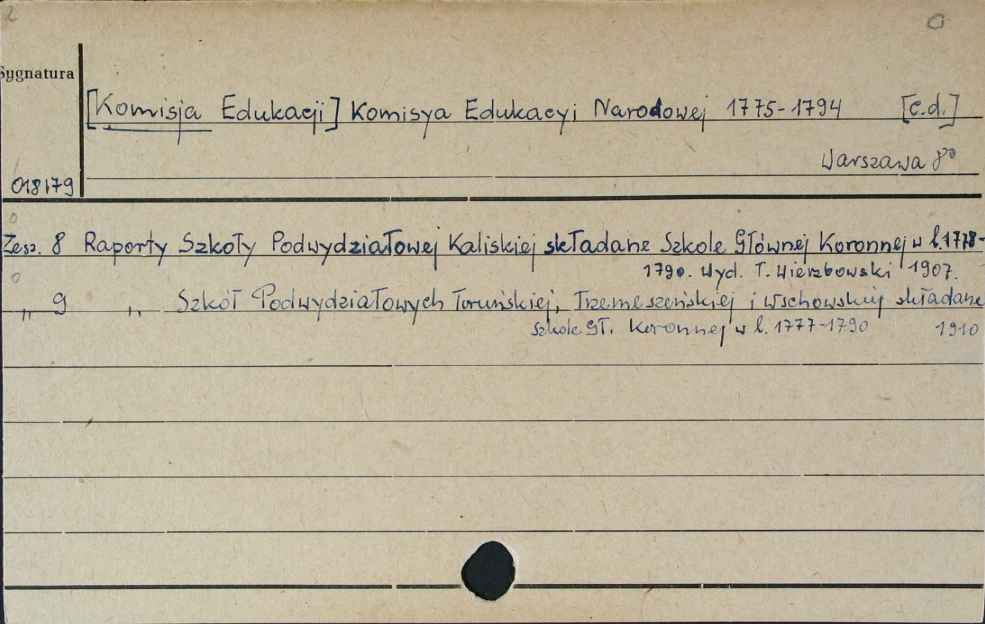 Sygnatura
[Komisja Edukacji] Komisya Edukacyi Narodowej 1775-1794 [c.d.]
Warszawa 8º
018179
Zesz. 8 Raporty Szkoły Podwydziałowej Kaliskiej składane Szkole Głównej Koronnej w l. 1778-
1790. Wyd. T. Wierzbowski 1907.
„ 9 „ Szkół Podwydziałowych Toruńskiej, Trzemeszeńskiej i Wschowskiej składane
Szkole Gł. Koronnej w l. 1777-1790 1910